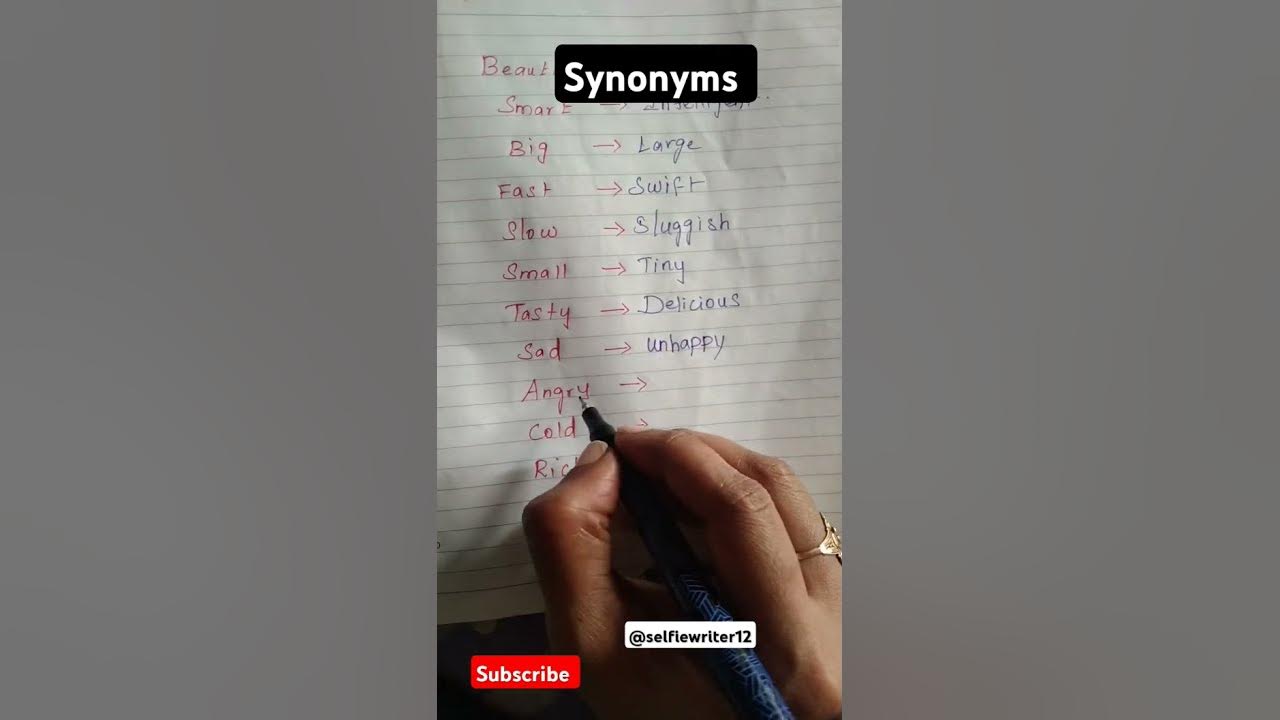 Synonyms
Smart → Intelligent
Big → Large
Fast → Swift
Slow → Sluggish
Small → Tiny
Tasty → Delicious
Sad → unhappy
Angry →
Cold →
@selfiewriter12
Subscribe